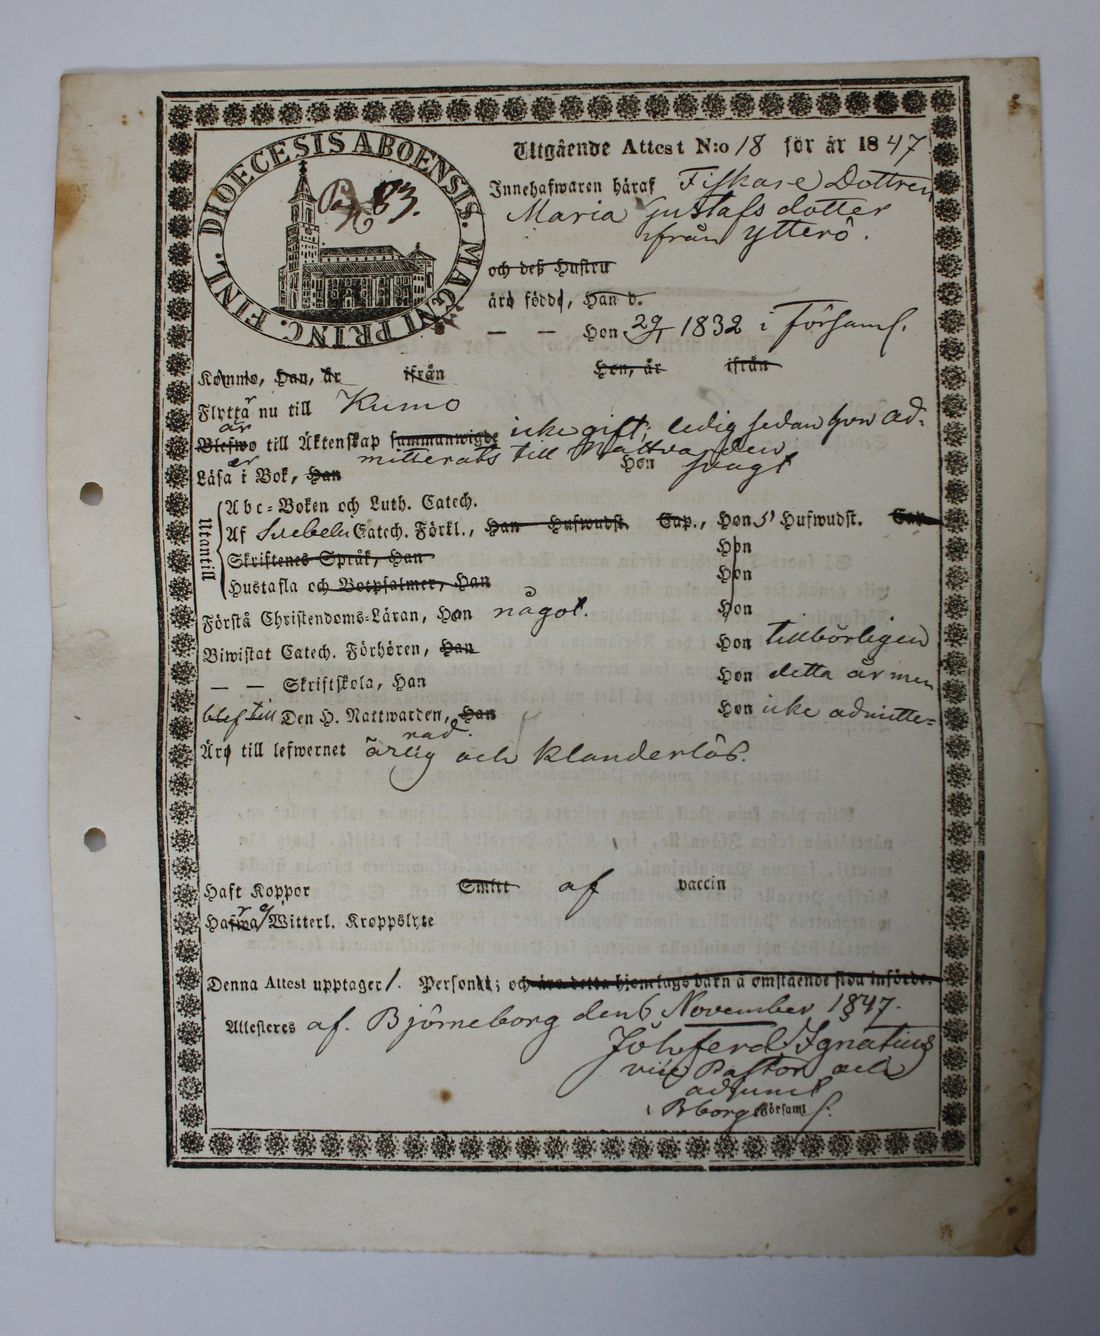 DIOECESIS ABOENSIS. MAGNI PRINC. FINL.
83.
Utgående Attest N:o 18 för år 1847
Innehafwaren häraf Fiskare Dottren
Maria Gustafs dotter
ifrån Ytterö.
och deß Hustru
äro födde, Han d.
— — Hon 29/1 1832 i Församl.
Komne, Han, är ifrån Hon, är ifrån
Flytta nu till Kumo
är
Blefwo till Äktenskap sammanwigde icke gift; ledig sedan hon ad-
mitterats till Nattvarden
Läsa i Bok, Han Hon svagt
Utantill
Abc-Boken och Luth. Catech.
Af Svebelii Catech. Förkl., Han Hufwudst. Cap., Hon 5 Hufwudst. Cap.
Skriftenes Språk, Han Hon
Hustafla och Botpsalmer, Han Hon
Förstå Christendoms-Läran, Hon något. Hon
Biwistat Catech. Förhören, Han Hon tillbörligen
— — Skriftskola, Han Hon detta år men
blef till Den H. Nattwarden, Han Hon icke admitte-
rad.
Äro till lefwernet ärlig och klanderlös.
Haft Koppor Smitt af vaccin
Hafwa Witterl. Kroppslyte
Denna Attest upptager 1. Personer; och äro detta hjonelags barn å omstående sida införde.
Attesteres af. Björneborg den 6 November 1847.
Joh Ferd Ignatius
vice Pastor och
adjunct
i Bborgs Församl.